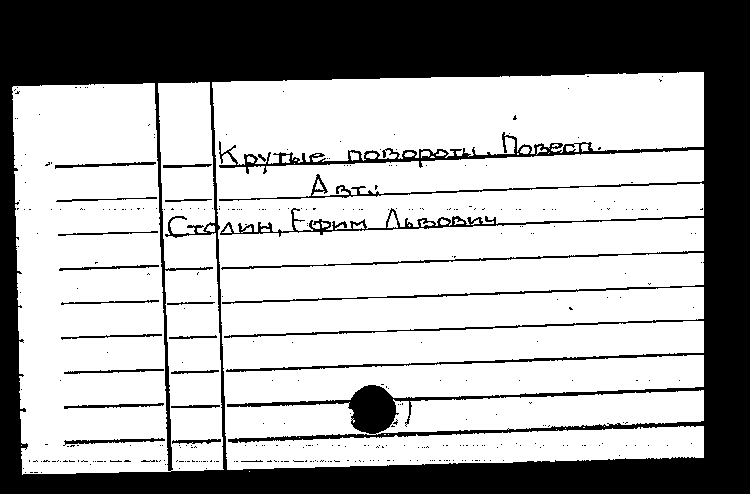 Крутые повороты. Повесть.
Авт.:
Столин, Ефим Львович